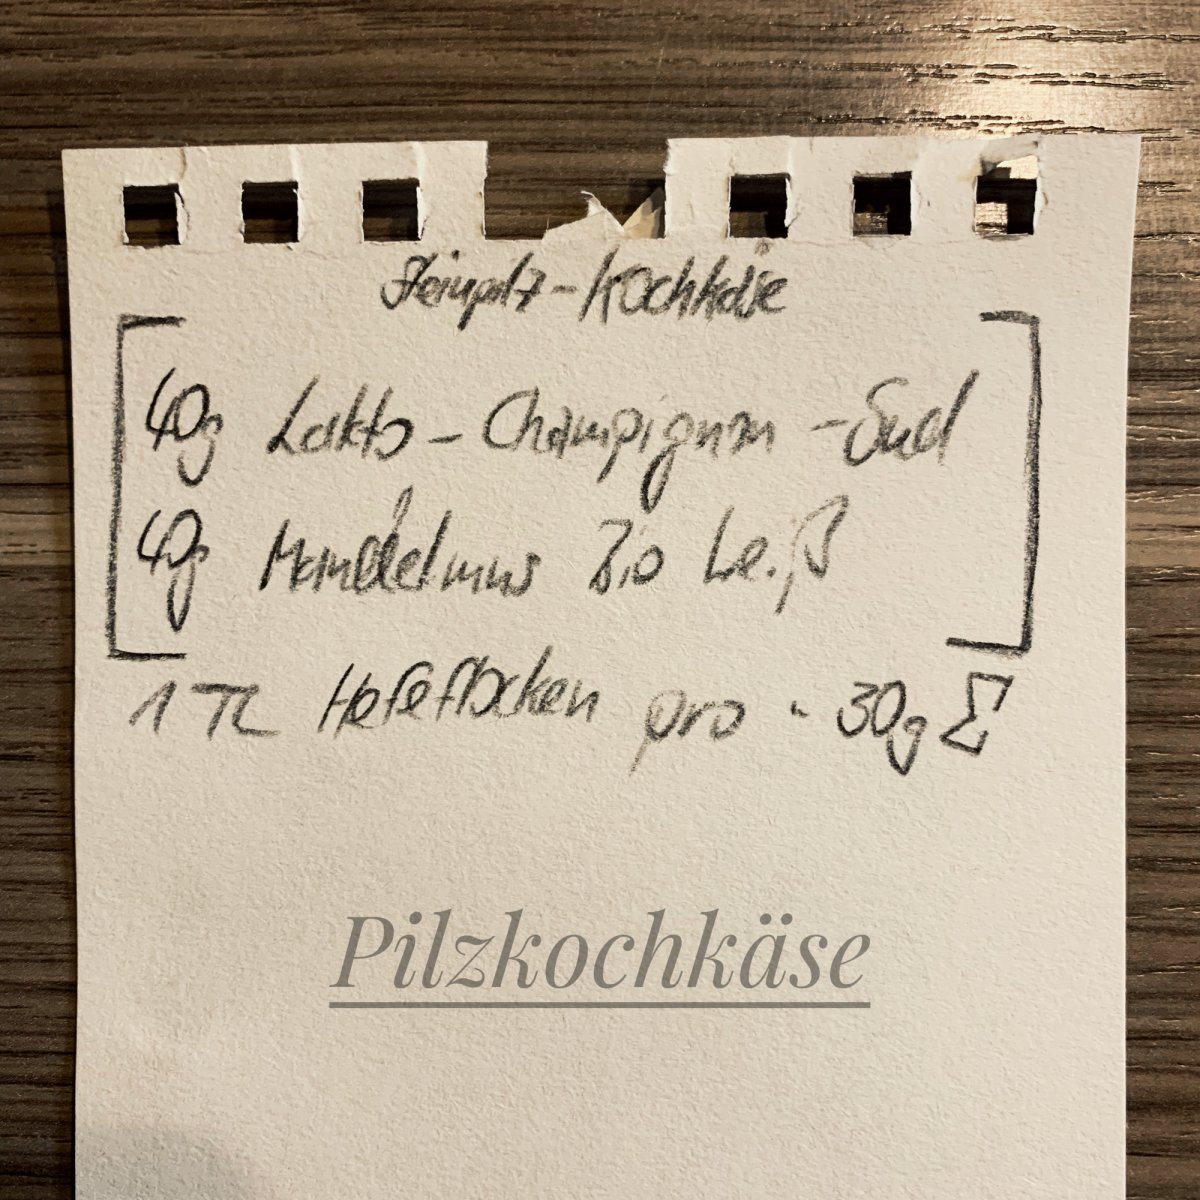 Steinpilz-Kochkäse
40g Lakto-Champignon-Sud
40g Mandelmus Bio Weiß
1 TL Hefeflocken pro 30g Σ
Pilzkochkäse